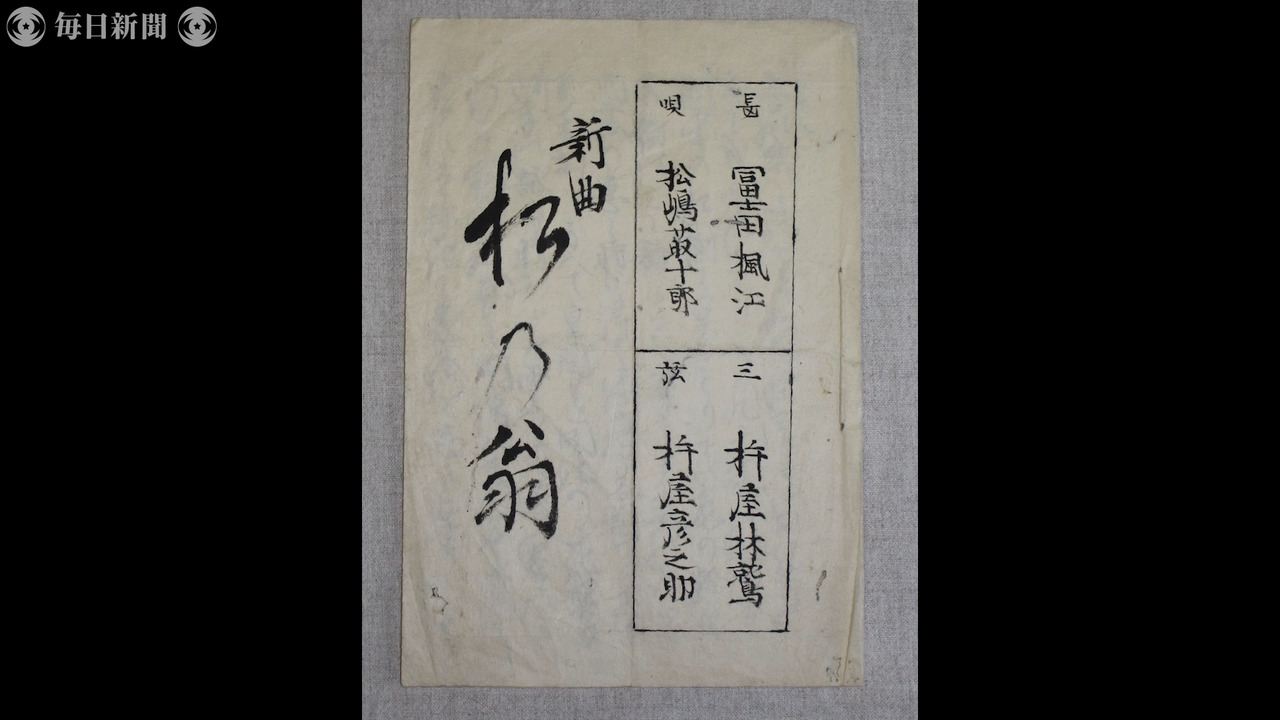 毎日新聞
長 冨士田楓江
唄 松嶋菆十郎
三 杵屋林鷲
弦 杵屋彦之助
新曲
松乃翁